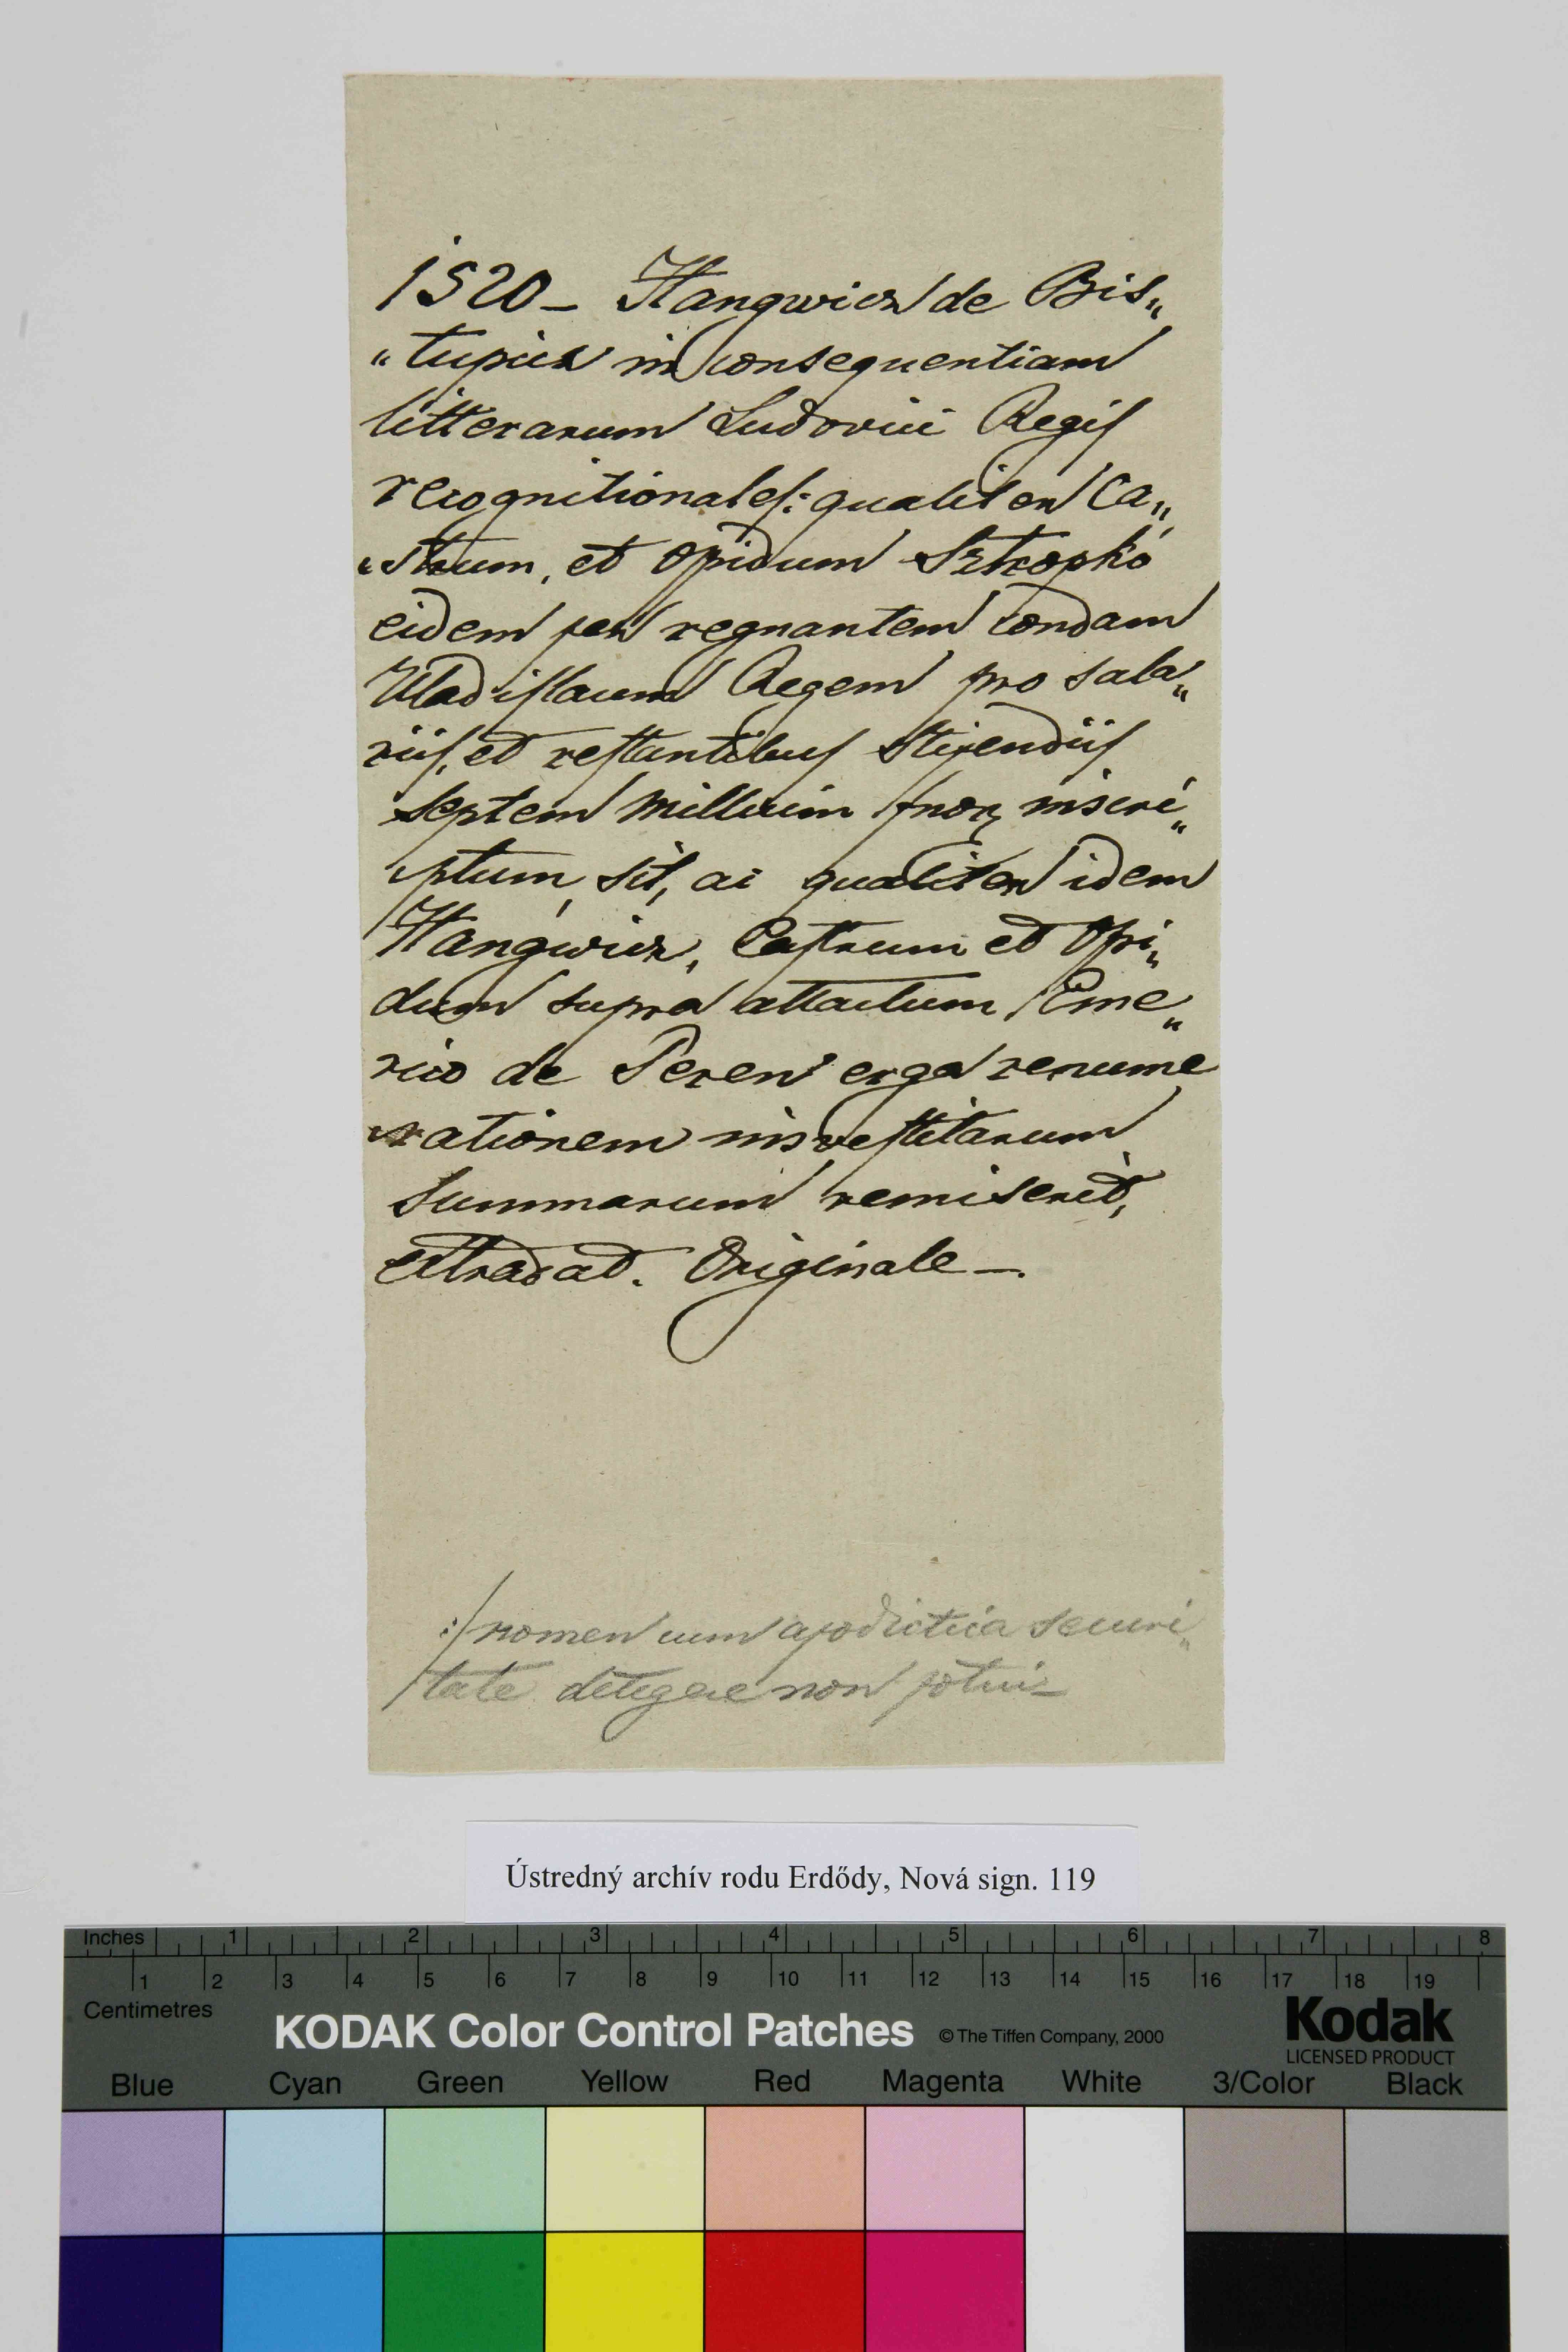 1520 – Hangwicz de Bis„
„tupicz in consequentiam
litterarum Ludovici Regis
recognitionales: qualiter Ca„
„strum, et Opidum Sztropkó
eidem per regnantem condam
Uladislaum Regem pro sala„
riis, et restantibus stipendiis
septem millium fnor, inscri„
ptum sit, ac qualiter idem
Hangwicz, Castrum et Opi„
dum supra attactum Eme„
rico de Peren erga renume
rationem investitarum
summarum remiserit,
extradat. Originale –.
:/ nomen cum apodictica securi„
tate detegere non potui –
Ústredný archív rodu Erdődy, Nová sign. 119
Inches 1 2 3 4 5 6 7 8
1 2 3 4 5 6 7 8 9 10 11 12 13 14 15 16 17 18 19
Centimetres
KODAK Color Control Patches © The Tiffen Company, 2000 Kodak
LICENSED PRODUCT
Blue Cyan Green Yellow Red Magenta White 3/Color Black